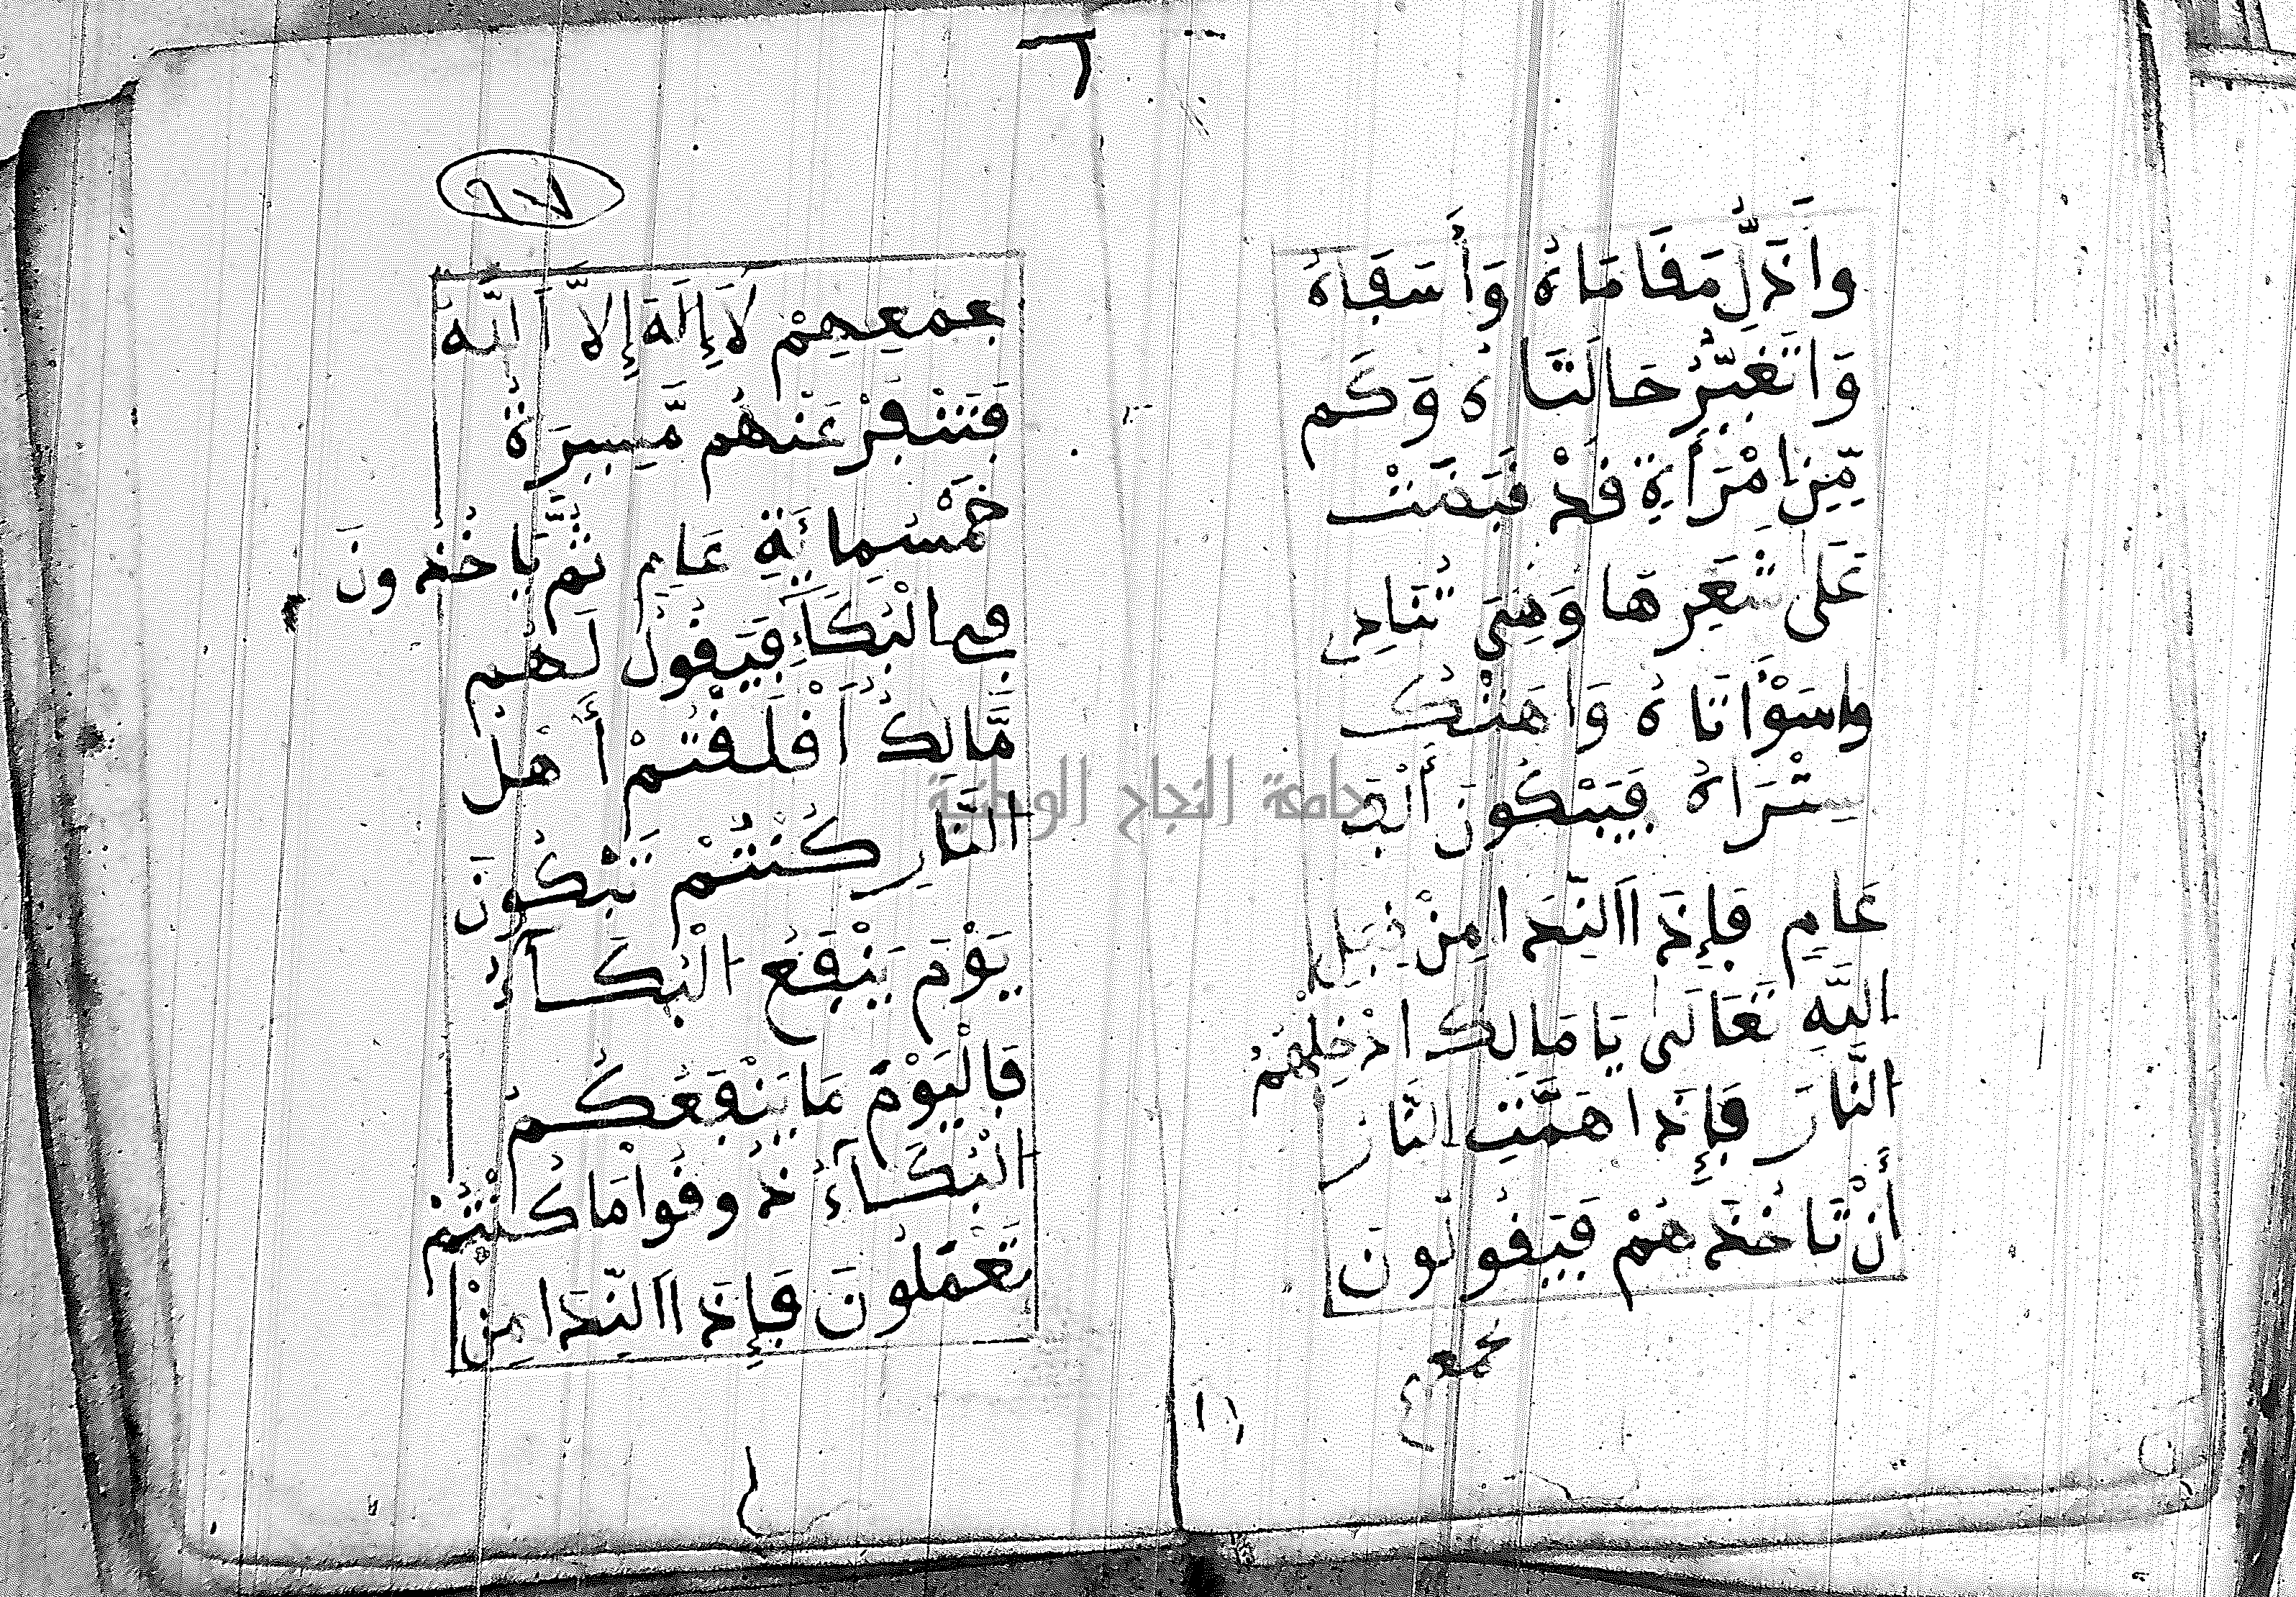 وَاذُلَّ مَقَامَاهُ وَأَسَفَاهُ
وَاتَغَيُّرُ حَالَتَاهُ وَكَم
مِّنِ امْرَأَةٍ قَدْ قَبَضَتْ
عَلَى شَعَرِهَا وَهِيَ تُنَادِي
وَاسَوْأَتَاهُ وَاهَتْكَ
سِتْرَاهُ فَيَبْكُونَ أَلْفَ
عَامٍ فَإِذَا النِّدَا مِنْ قِبَلِ
اللَّهِ تَعَالَى يَا مَالِكُ ادْخِلْهُمُ
النَّارَ فَإِذَا هَمَّتِ النَّارُ
أَنْ تَاخُذَهُمْ فَيَقُولُونَ
بجمعهم
٢٠٧
بِجَمْعِهِمْ لَا إِلَهَ إِلَّا اللَّهُ
فَتَنْفِرُ عَنْهُم مَّسِيرَةَ
خَمْسُمِائَةِ عَامٍ ثُمَّ يَاخُذُونَ
فِي الْبُكَاءِ فَيَقُولُ لَهُم
مَّالِكُ أَقْلَقْتُمْ أَهْلَ
النَّارِ كُنْتُمْ تَبْكُونَ
يَوْمَ يَنْفَعُ الْبُكَآءُ
فَالْيَوْمَ مَا يَنْفَعُكُمُ
الْبُكَآءُ ذُوقُوا مَا كُنْتُمْ
تَعْمَلُونَ فَإِذَا النِّدَا مِنْ
جامعة النجاح الوطنية